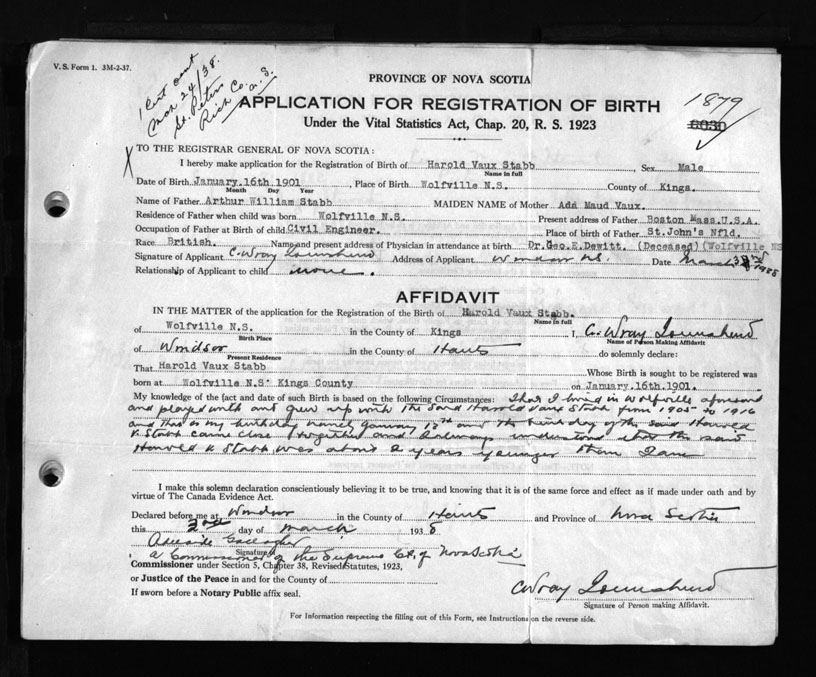 V. S. Form 1. 3M-2-37.
1 Cert sent
Mar 24/38.
St. Peters
Rich Co. N.S.
PROVINCE OF NOVA SCOTIA
APPLICATION FOR REGISTRATION OF BIRTH
1879
6030
Under the Vital Statistics Act, Chap. 20, R. S. 1923
X TO THE REGISTRAR GENERAL OF NOVA SCOTIA:
I hereby make application for the Registration of Birth of Harold Vaux Stabb, Sex Male
Name in full
Date of Birth January.16th 1901, Place of Birth Wolfville N.S. County of Kings.
Month Day Year
Name of Father Arthur William Stabb MAIDEN NAME of Mother Ada Maud Vaux.
Residence of Father when child was born Wolfville N.S. Present address of Father Boston Mass.U.S.A.
Occupation of Father at Birth of child Civil Engineer. Place of birth of Father St.John's Nfld.
Race British. Name and present address of Physician in attendance at birth Dr.Geo.E.Dewitt. (Deceased)(Wolfville NS
Signature of Applicant C. Wray Townshend Address of Applicant Windsor N.S. Date March 1938
Relationship of Applicant to child none.
AFFIDAVIT
IN THE MATTER of the application for the Registration of the Birth of Harold Vaux Stabb.
Name in full
of Wolfville N.S. in the County of Kings I, C. Wray Townshend
Birth Place Name of Person Making Affidavit
of Windsor in the County of Hants do solemnly declare:
Present Residence
That Harold Vaux Stabb Whose Birth is sought to be registered was
born at Wolfville N.S. Kings County on January.16th.1901.
My knowledge of the fact and date of such Birth is based on the following Circumstances: That I lived in Wolfville aforesaid
and played with and grew up with the said Harold Vaux Stabb from 1905 to 1916
and that is my birthday namely January and the birthday of the said Harold
V. Stabb came close together and I always understood that the said
Harold V Stabb was about 2 years younger than I am
I make this solemn declaration conscientiously believing it to be true, and knowing that it is of the same force and effect as if made under oath and by
virtue of The Canada Evidence Act.
Declared before me at Windsor in the County of Hants and Province of Nova Scotia
this 2nd day of March 1938
Gallagher
Signature
a Commissioner of the Supreme Ct. of Nova Scotia
Commissioner under Section 5, Chapter 38, Revised Statutes, 1923,
or Justice of the Peace in and for the County of
If sworn before a Notary Public affix seal.
C Wray Townshend
Signature of Person making Affidavit.
For Information respecting the filling out of this Form, see Instructions on the reverse side.